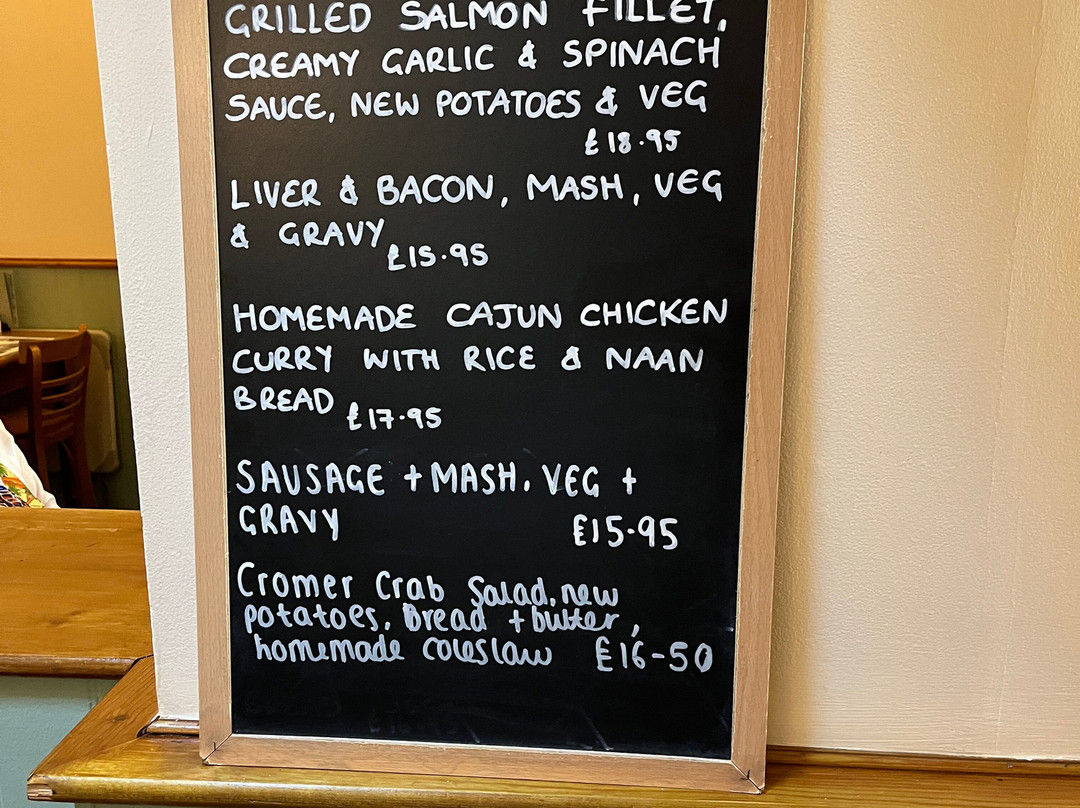 GRILLED SALMON FILLET,
CREAMY GARLIC & SPINACH
SAUCE, NEW POTATOES & VEG
£18.95
LIVER & BACON, MASH, VEG
& GRAVY
£15.95
HOMEMADE CAJUN CHICKEN
CURRY WITH RICE & NAAN
BREAD £17.95
SAUSAGE + MASH. VEG +
GRAVY £15.95
Cromer Crab Salad, new
potatoes, Bread + butter,
homemade coleslaw £16-50